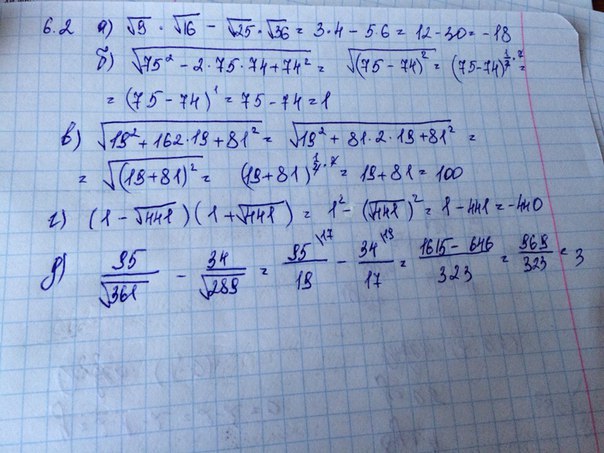 6.2 а) √9 · √16 − √25 · √36 = 3·4 − 5·6 = 12-30 = -18
б) √(75² − 2·75·74 + 74²) = √(75 − 74)² = (75-74)^(1/2·2) =
= (75 − 74)¹ = 75 − 74 = 1
в) √(19² + 162·19 + 81²) = √(19² + 81·2·19 + 81²) =
= √(19 + 81)² = (19 + 81)^(1/2·2) = 19 + 81 = 100
г) (1 − √441)(1 + √441) = 1² − (√441)² = 1 − 441 = -440
д) 95/√361 − 34/√289 = 95\17/19 − 34\19/17 = (1615 − 646)/323 = 969/323 = 3